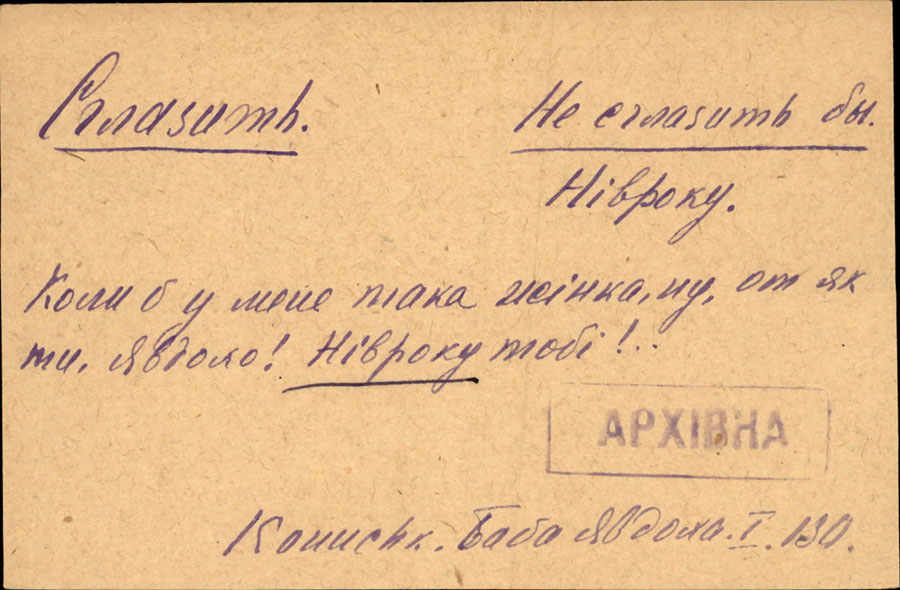 Сглазить. Не сглазить бы.
Нівроку.
Коли б у мене така жінка, ну, от як
ти, Явдохо! Нівроку тобі!..
АРХІВНА
Кониськ. Баба Явдоха. I. 130.